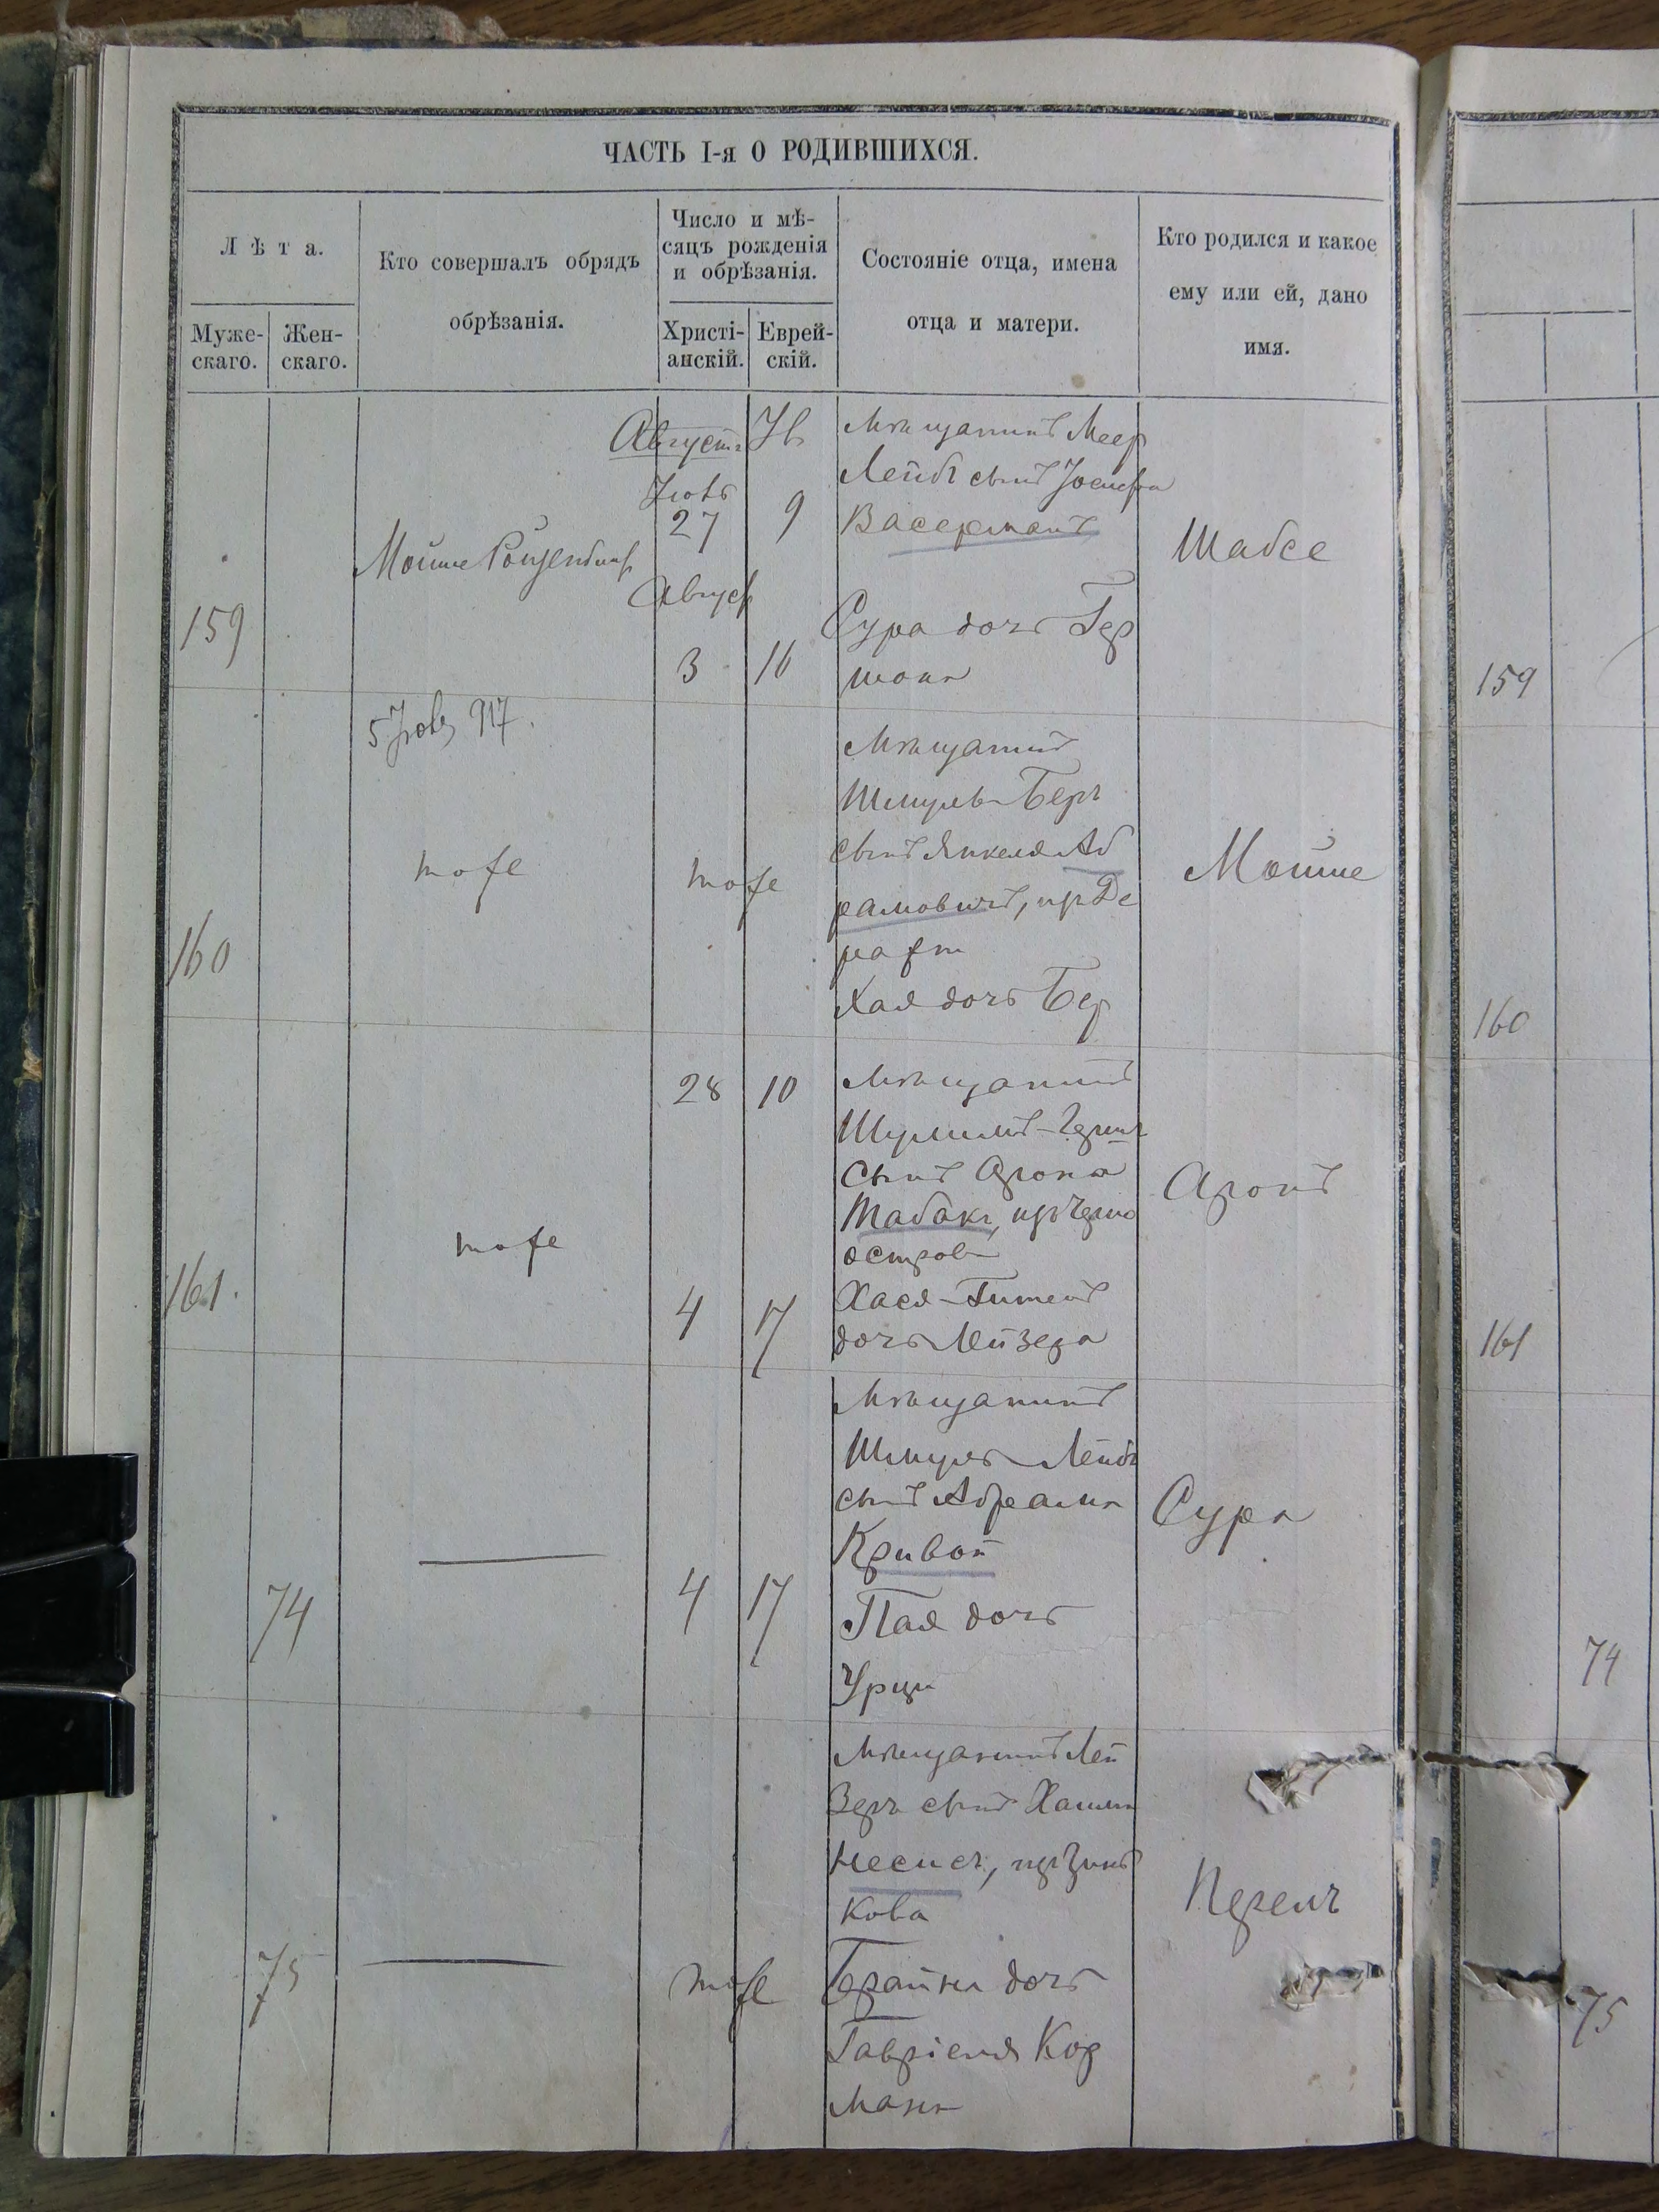 ЧАСТЬ I-я О РОДИВШИХСЯ.
Лѣта.
Муже-
скаго.
Жен-
скаго.
Кто совершалъ обрядъ
обрѣзанія.
Число и мѣ-
сяцъ рожденія
и обрѣзанія.
Христі-
анскій.
Еврей-
скій.
Состояніе отца, имена
отца и матери.
Кто родился и какое
ему или ей, дано
имя.
159
Мойше
Августъ
27
9
Август
3
16
Мѣщанинъ Меер
Лейбъ сынъ Іосифа
Васерманъ
Сура дочь Гер
шона
Шабсе
159
160
тоже
тоже
Мѣщанинъ
Шмуль-Беръ
сынъ Янкеля Аб
рамовичъ, пр. Де
ражни
Хая дочь Бер
Мойше
160
161.
тоже
28
10
4
17
Мѣщанинъ
сынъ Арона
Табакъ, пр. Черно
остров
Хася-Гитель
дочь Лейзера
Аронъ
161
74
4
17
Мѣщанинъ
Шмуль-Лейбъ
сынъ Абрама
Кривой
Пая дочь
Сура
74
75
тоже
Мѣщанинъ Лей
зеръ сынъ Хаима
Несисъ, пр. Зинь
кова
Брайна дочь
Гавріеля Кор
мана
Перелъ
75